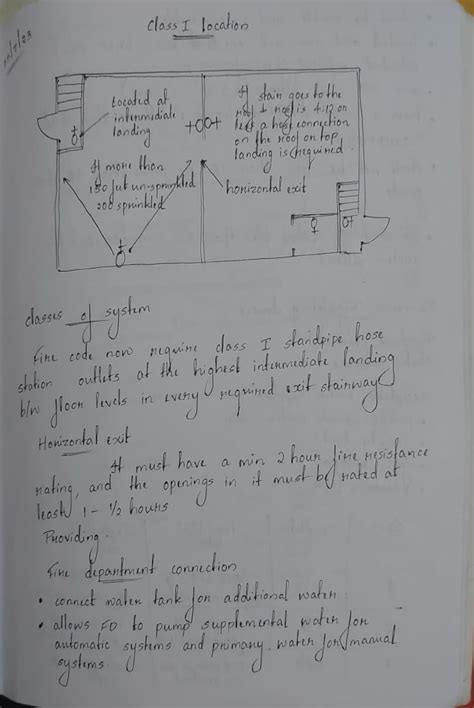 Class I location
Located at
intermediate
landing
If stair goes to the
roof & roof is 4:12 or
less a hose connection
on the roof or top
landing is required.
If more than
150 feet un-sprinkled
200 sprinkled
horizontal exit
classes of system
Fire code now require class I standpipe hose
station outlets at the highest intermediate landing
b/w floor levels in every required exit stairway
Horizontal exit
It must have a min 2 hour fire resistance
rating, and the openings in it must be rated at
least 1 - 1/2 hours
Providing.
Fire department connection
• connect water tank for additional water
• allows FD to pump supplemental water for
automatic systems and primary water for manual
systems.